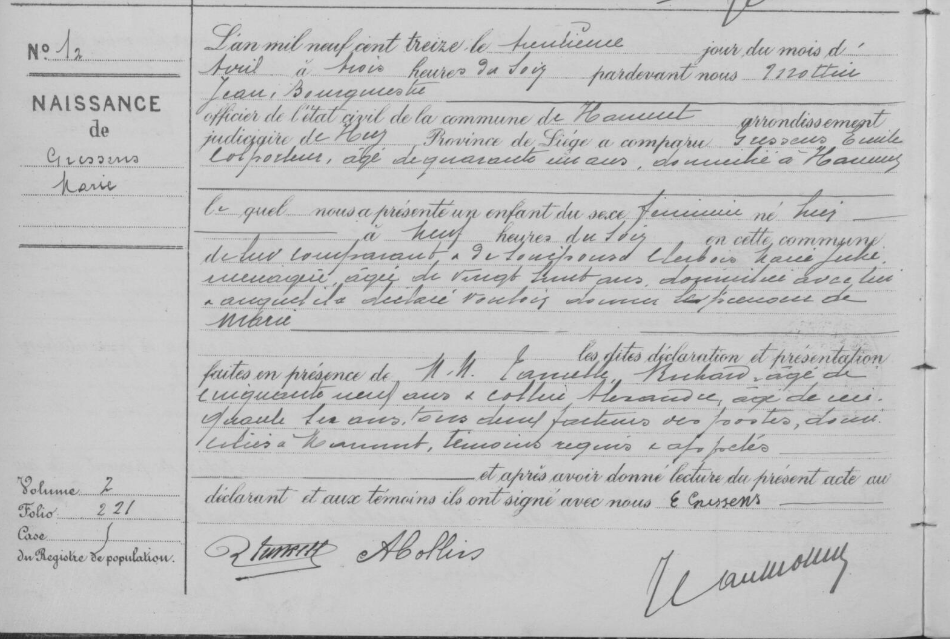 N° 12
NAISSANCE
de
Grissens
Marie
L'an mil neuf cent treize le trentième jour du mois d'
Avril à trois heures du Soir pardevant nous Mottin
Jean, Bourgmestre
officier de l'état civil de la commune de Hannut arrondissement
judiciaire de Huy Province de Liége a comparu Grissens Emile
colporteur, âgé de quarante un ans, domicilié à Hannut
le quel nous a présenté un enfant du sexe féminin né hier
à neuf heures du Soir en cette commune
de lui comparant & de son épouse Marie Julie,
ménagère, âgée de vingt ans, domiciliée avec lui
& auquel il a déclaré vouloir donner les prénoms de
Marie
les dites déclaration et présentation
faites en présence de M.M. Richard, âgé de
cinquante neuf ans & Collin Alexandre, âgé de cin-
quante six ans, tous deux facteurs des postes, domi-
ciliés à Hannut, témoins requis & appelés
et après avoir donné lecture du présent acte au
déclarant et aux témoins ils ont signé avec nous E Grissens
Volume 2
Folio 221
Case
du Registre de population.
A Collin
Jean Mottin